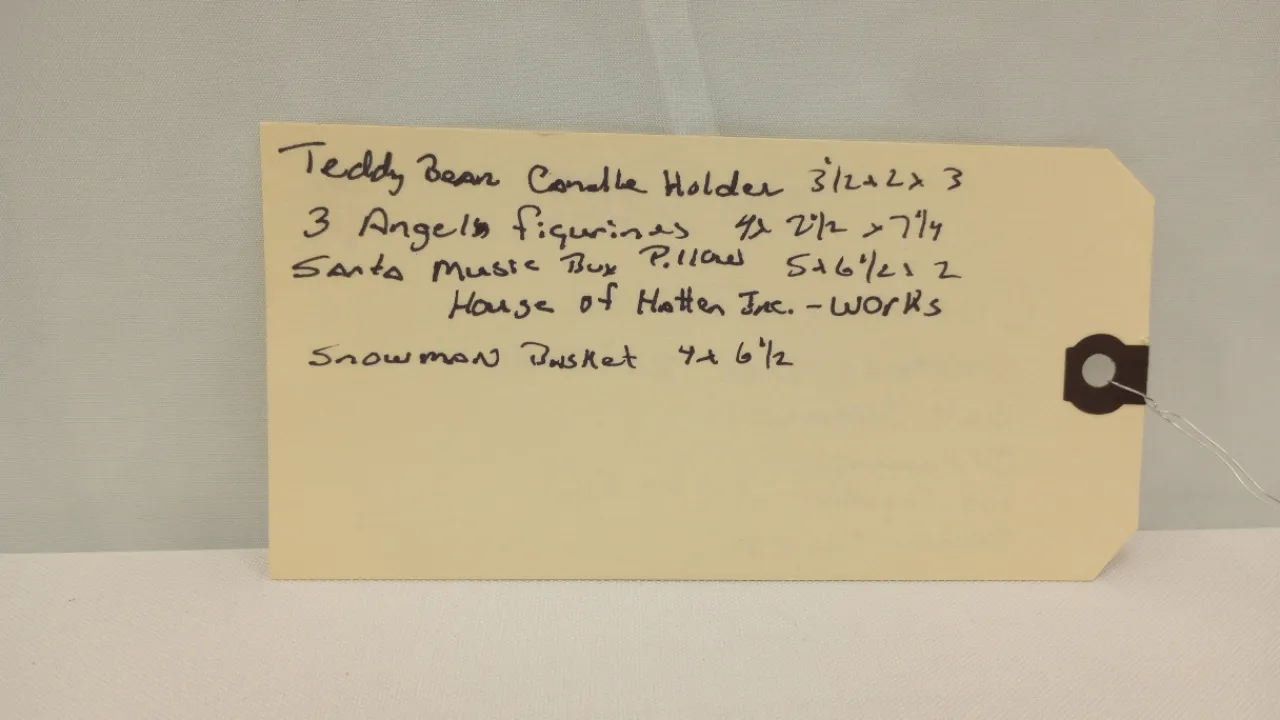 Teddy Bear Candle Holder 3 1/2 x 2 x 3
3 Angels figurines 4x 2 1/2 x 7 1/4
Santa Music Box Pillow 5x6 1/2 x 2
House of Hatten Inc. - works
Snowman Basket 4x 6 1/2